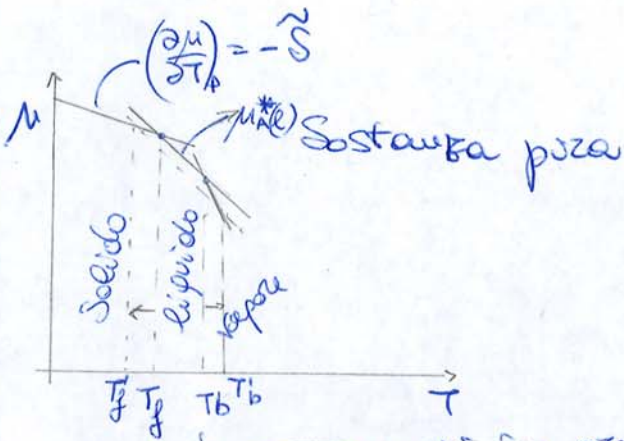 (∂μ/∂T)ₚ = - S̃
μ
μ*ₐ(l) Sostanza pura
Solido
liquido
vapore
T'f Tf Tb T'b
T